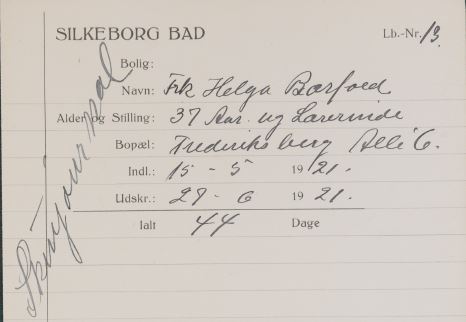 SILKEBORG BAD
Lb.-Nr. 13.
Bolig:
Navn: Frk Helga Barfoed
Alder og Stilling: 37 Aar. ug Lærerinde
Bopæl: Frederiksberg Allé 6.
Indl.: 15 - 5 1921.
Udskr.: 27 - 6 1921.
Ialt 44 Dage